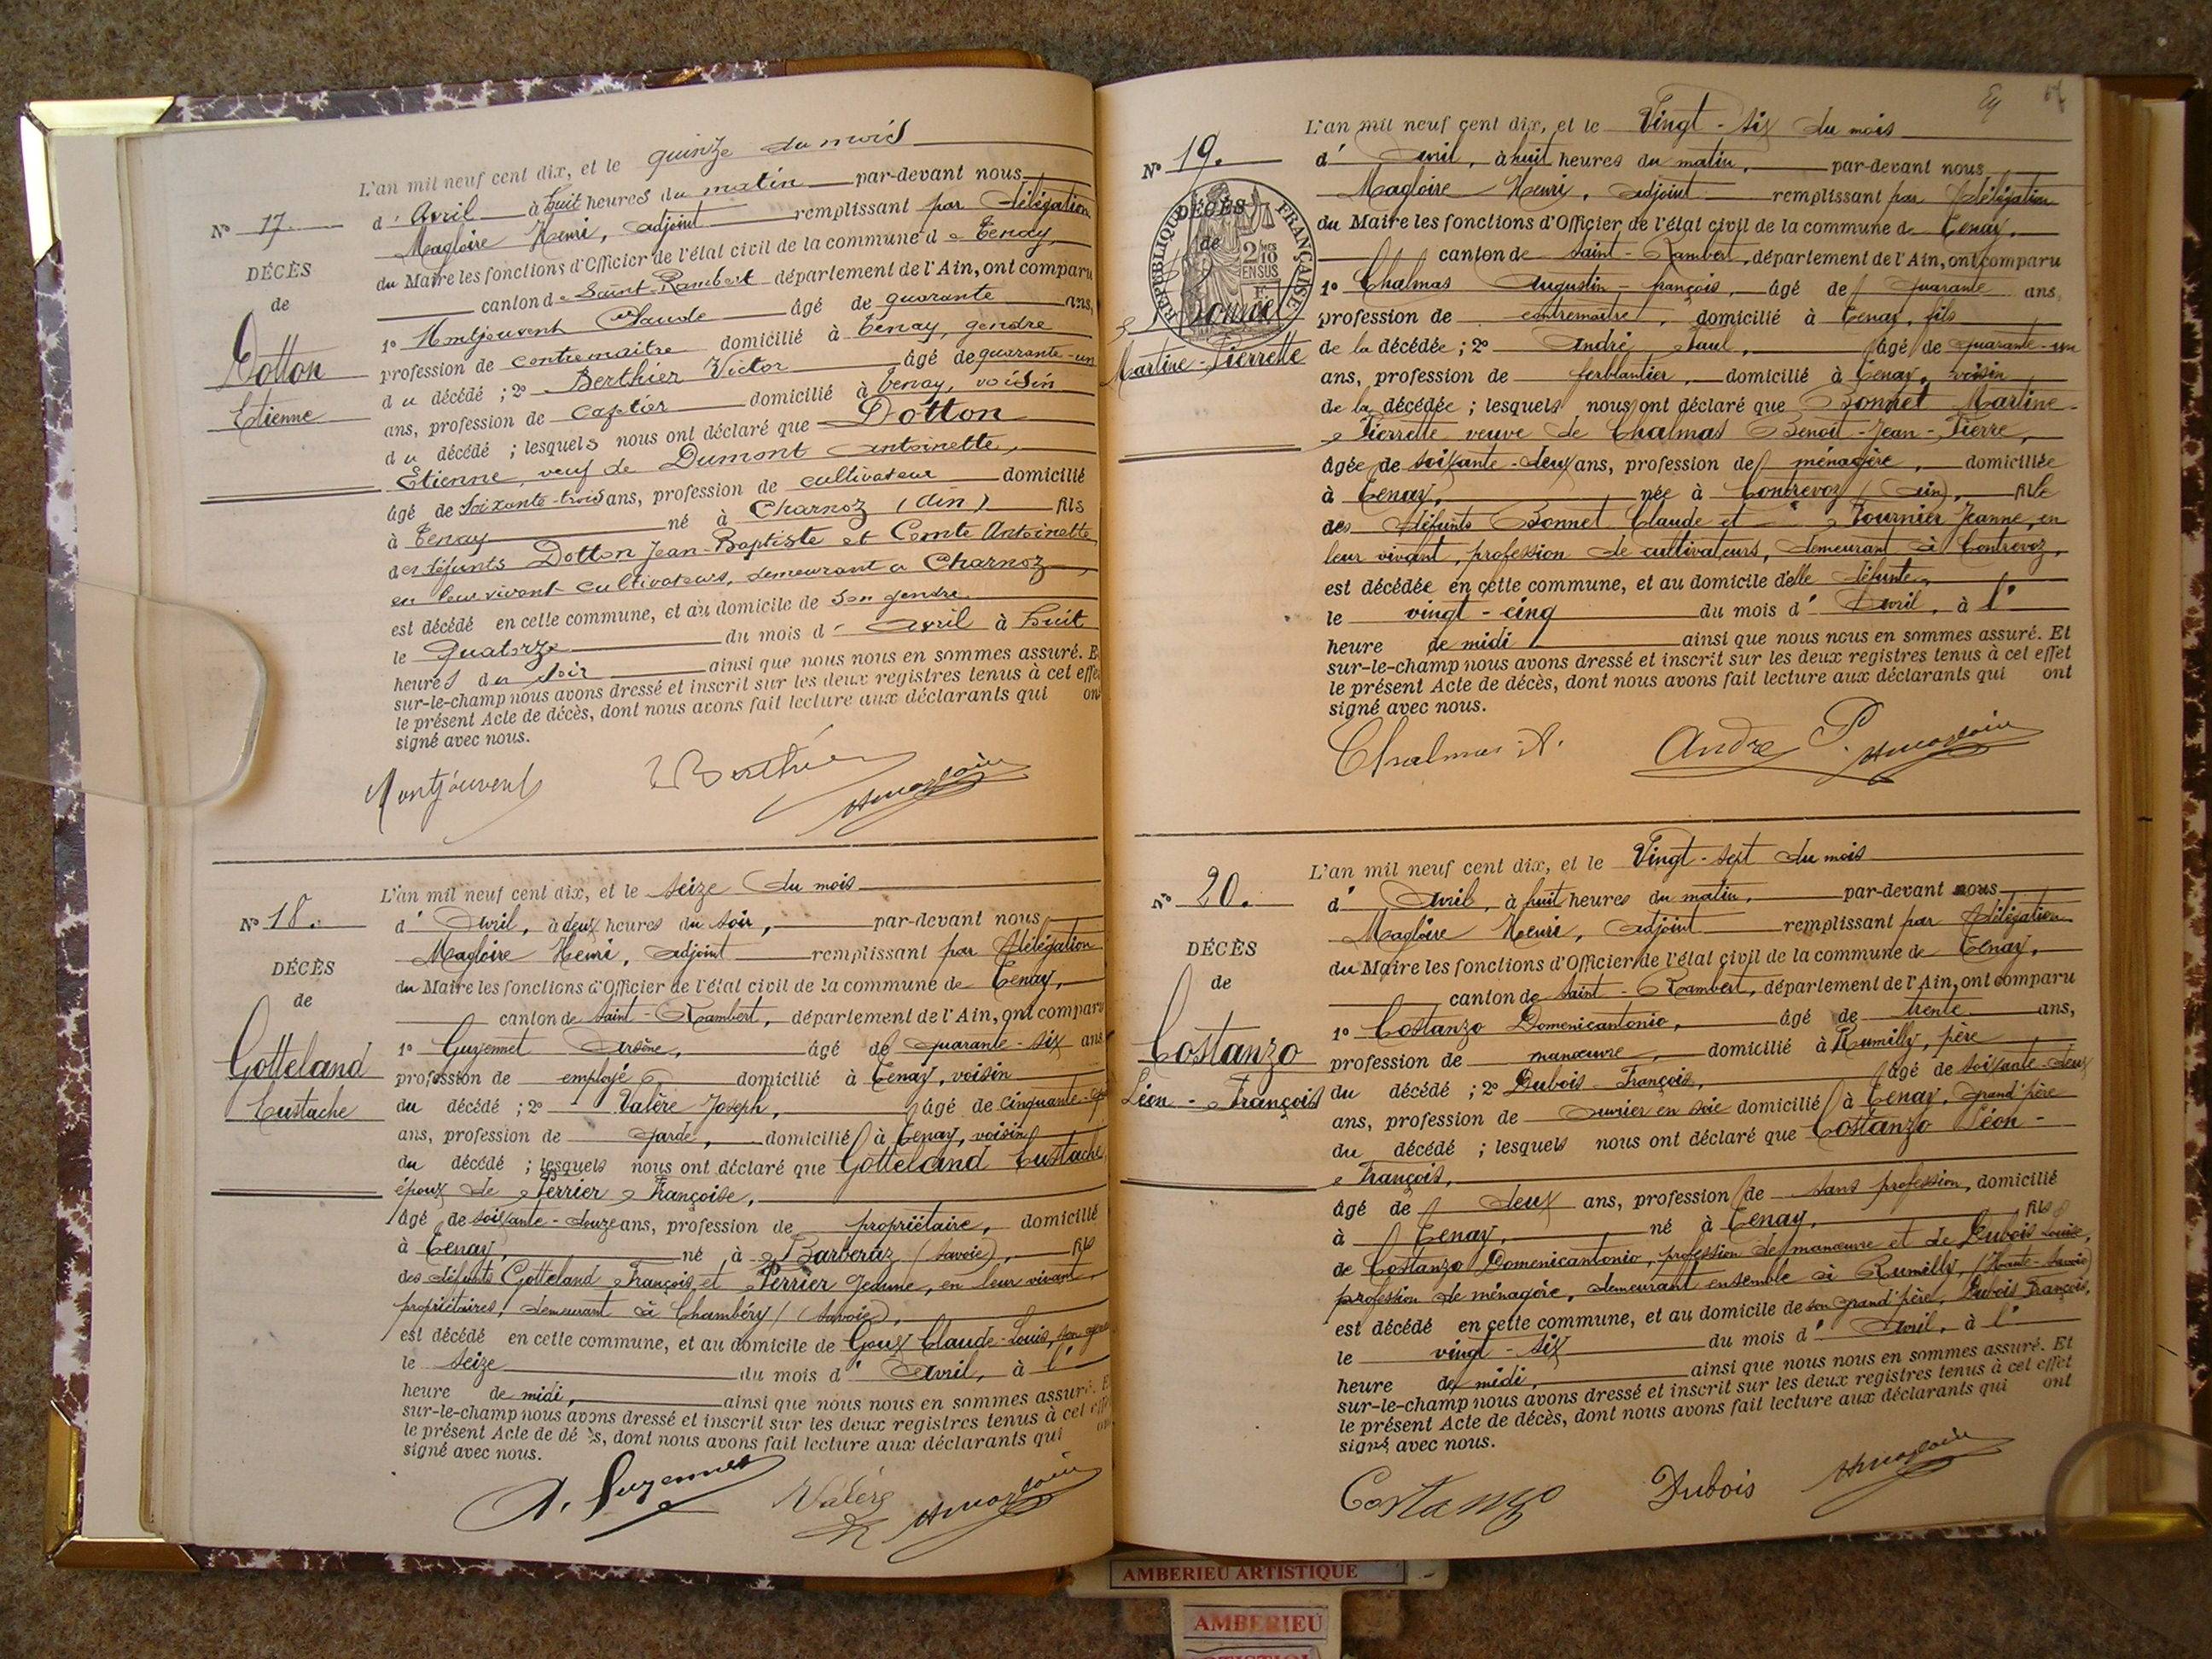 L'an mil neuf cent dix, et le quinze du mois
d'Avril à huit heures du matin par-devant nous
Magloire Henri, adjoint remplissant par délégation
du Maire les fonctions d'Officier de l'état civil de la commune de Tenay
canton de Saint-Rambert département de l'Ain, ont comparu
1º Montjouvent Claude âgé de quarante ans,
profession de contremaitre domicilié à Tenay, gendre
du décédé ; 2º Berthier Victor âgé de quarante-un
ans, profession de domicilié à Tenay, voisin
du décédé ; lesquels nous ont déclaré que Dotton
Etienne, veuf de Dumont Antoinette,
âgé de soixante-trois ans, profession de cultivateur domicilié
à Tenay né à Charnoz (Ain) fils
des défunts Dotton Jean-Baptiste et Comte Antoinette
en leur vivant cultivateurs, demeurant à Charnoz,
est décédé en cette commune, et au domicile de son gendre
le quatorze du mois d' avril à huit
heures du soir ainsi que nous nous en sommes assuré. E
sur-le-champ nous avons dressé et inscrit sur les deux registres tenus à cet effe
le présent Acte de décès, dont nous avons fait lecture aux déclarants qui on
signé avec nous.
Nº 17.
DÉCÈS
de
Dotton
Etienne
Montjouvent Berthier Hmagloire
L'an mil neuf cent dix, et le seize du mois
d' Avril, à deux heures du soir, par-devant nous
Magloire Henri, adjoint remplissant par délégation
du Maire les fonctions d'Officier de l'état civil de la commune de Tenay,
canton de Saint-Rambert, département de l'Ain, ont comparu
1º Guyennet Arsène, âgé de quarante-six ans
profession de employé domicilié à Tenay, voisin
du décédé ; 2º Valère Joseph, âgé de cinquante-
ans, profession de garde, domicilié à Tenay, voisin
du décédé ; lesquels nous ont déclaré que Gotteland Eustache
époux de Perrier Françoise,
âgé de soixante-douze ans, profession de propriétaire, domicilié
à Tenay, né à Barberaz (Savoie), fils
des défunts Gotteland François et Perrier Jeanne, en leur vivant,
propriétaires, demeurant à Chambéry (Savoie),
est décédé en cette commune, et au domicile de Goux Claude-Louis, son
le seize du mois d' Avril, à l'
heure de midi, ainsi que nous nous en sommes assuré. E
sur-le-champ nous avons dressé et inscrit sur les deux registres tenus à cet effe
le présent Acte de décès, dont nous avons fait lecture aux déclarants qui on
signé avec nous.
Nº 18.
DÉCÈS
de
Gotteland
Eustache
A. Guyennet Valère Hmagloire
L'an mil neuf cent dix, et le Vingt-six du mois
d' Avril, à huit heures du matin, par-devant nous
Magloire Henri, adjoint remplissant par délégation
du Maire les fonctions d'Officier de l'état civil de la commune de Tenay,
canton de Saint-Rambert, département de l'Ain, ont comparu
1º Chalmas Augustin-François, âgé de quarante ans,
profession de contremaître, domicilié à Tenay, fils
de la décédée ; 2º André Paul, âgé de quarante-un
ans, profession de ferblantier, domicilié à Tenay, voisin
de la décédée ; lesquels nous ont déclaré que Bonnet Martine-
Pierrette veuve de Chalmas Benoit-Jean-Pierre,
âgée de soixante-deux ans, profession de ménagère, domiciliée
à Tenay, née à Contrevoz (Ain), fille
des défunts Bonnet Claude et Tournier Jeanne, en
leur vivant, profession de cultivateurs, demeurant à Contrevoz,
est décédée en cette commune, et au domicile d'elle défunte,
le vingt-cinq du mois d' Avril, à l'
heure de midi ainsi que nous nous en sommes assuré. Et
sur-le-champ nous avons dressé et inscrit sur les deux registres tenus à cet effet
le présent Acte de décès, dont nous avons fait lecture aux déclarants qui ont
signé avec nous.
Nº 19.
RÉPUBLIQUE FRANÇAISE
DÉCÈS
de
2/10 EN SUS
Bonnet
Martine-Pierrette
Chalmas A. André P. Hmagloire
L'an mil neuf cent dix, et le Vingt-sept du mois
d' Avril, à huit heures du matin, par-devant nous
Magloire Henri, adjoint remplissant par délégation
du Maire les fonctions d'Officier de l'état civil de la commune de Tenay,
canton de Saint-Rambert, département de l'Ain, ont comparu
1º Costanzo Domenicantonio, âgé de trente ans,
profession de manœuvre, domicilié à Rumilly, père
du décédé ; 2º Dubois François, âgé de soixante-deux
ans, profession de Ouvrier en soie domicilié à Tenay, grand'père
du décédé ; lesquels nous ont déclaré que Costanzo Léon-
François,
âgé de deux ans, profession de sans profession, domicilié
à Tenay, né à Tenay, fils
de Costanzo Domenicantonio, profession de manœuvre et de Dubois Louise,
profession de ménagère, demeurant ensemble à Rumilly, (Haute-Savoie)
est décédé en cette commune, et au domicile de son grand'père, Dubois François,
le vingt-six du mois d' Avril, à l'
heure de midi, ainsi que nous nous en sommes assuré. Et
sur-le-champ nous avons dressé et inscrit sur les deux registres tenus à cet effet
le présent Acte de décès, dont nous avons fait lecture aux déclarants qui ont
signé avec nous.
Nº 20.
DÉCÈS
de
Costanzo
Léon-François
Costanzo Dubois Hmagloire
AMBERIEU ARTISTIQUE
AMBERIEU